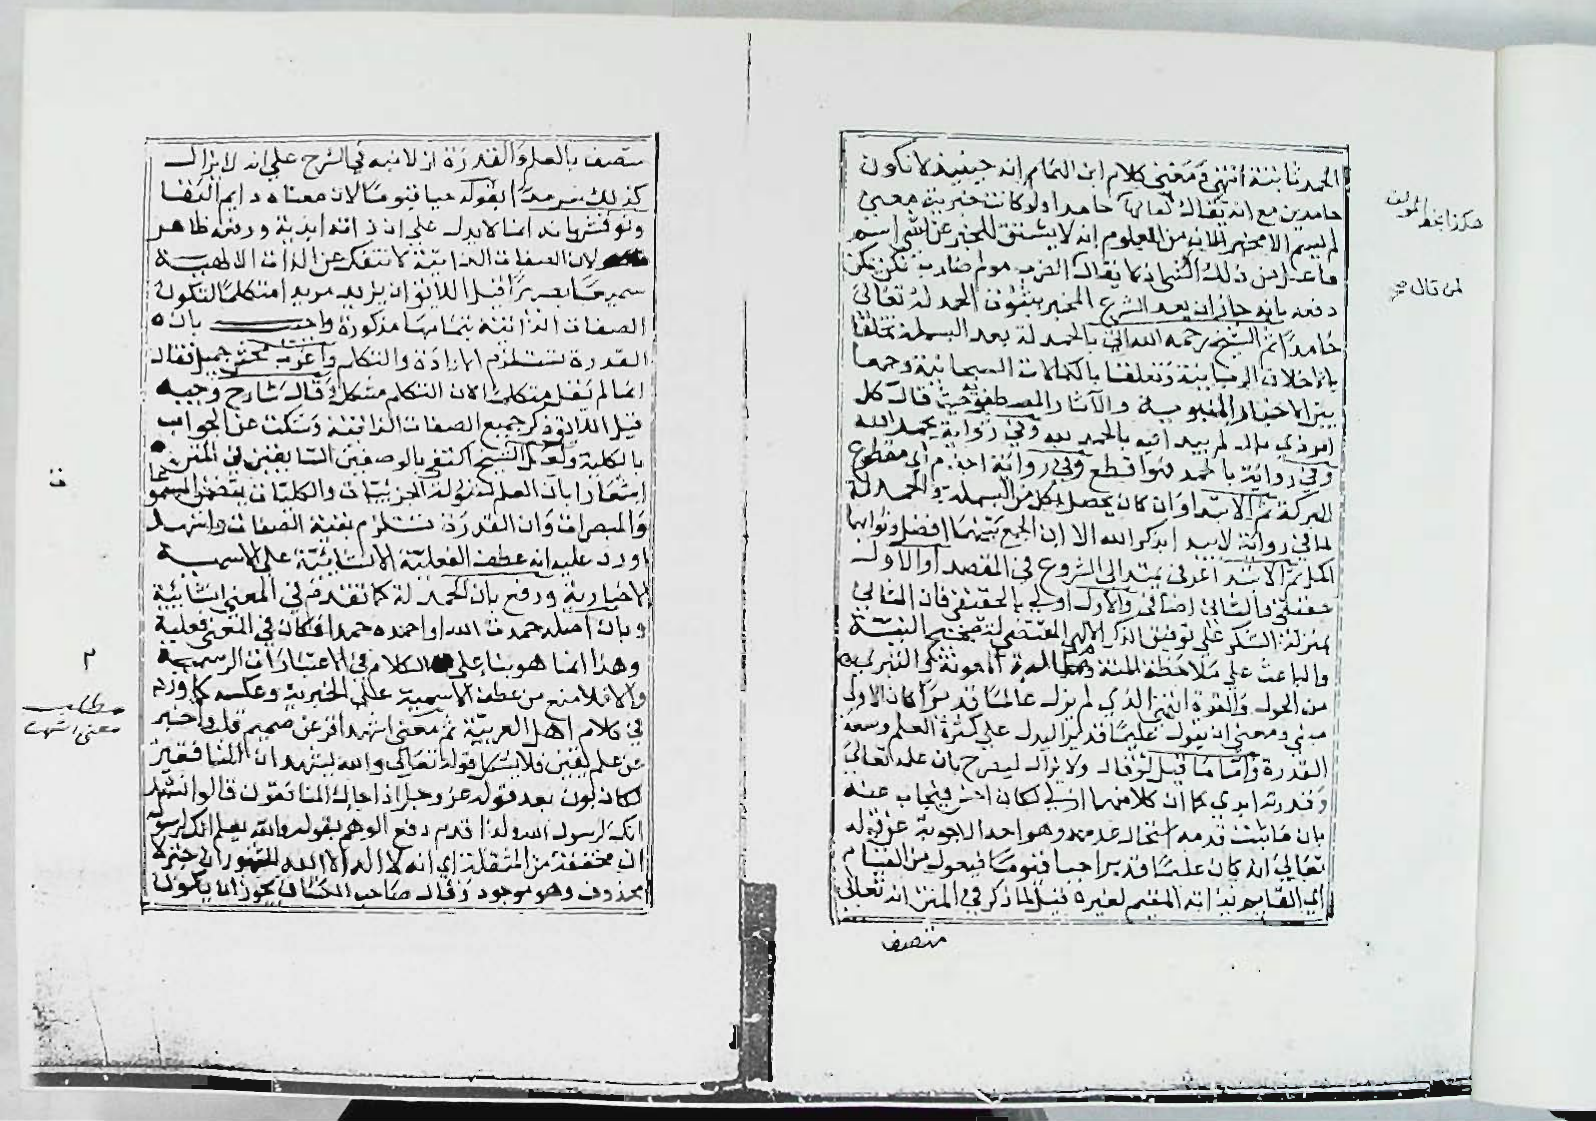 الحمد ثابتة انتهى ومعنى كلام ابن الهمام انه حينئذ لا تكون
حامدين مع انه يقال لقائلها حامد اذ لو كانت خبرية معنى
لم يسم الا مخبرا لان من المعلوم انه لا يشتق للمخبر عن الشئ اسم
دفعه بانه جاز ان يعد الشرع المخبر بثبوت الحمد له تعالى
حامدا ثم الشيخ رحمه الله اتى بالحمد لة بعد البسملة تخلقا
بالاخلاق الربانية وتعلقا بالكمالات السبحانية وجمعا
بين الاخبار النبوية والآثار المصطفوية حيث قال كل
امر ذي بال لم يبدا فيه بالحمد لله وفي رواية بحمد الله
وفي رواية بالحمد فهو اقطع وفي رواية اجذم اي مقطوع
البركة ثم الابتدا وان كان يحصل بكل من البسملة والحمد لة
لما في رواية لا يبدا بذكر الله الا ان الجمع بينهما افضل وثوابهما
اكمل ثم الابتدا عرفي يمتد الى الشروع في المقصد او الاول
حقيقي والثاني اضافي والاول اولى بالحقيقي فان الثاني
بمنزلة الشكر على توفيق الذكر الالهي المقتضي لتصحيح النية
والباعث على ملاحظة المنة المعونة في التبري
من الحول والقوة انتهى الذي لم يزل عالما قديرا كان الاولى
مبنى ومعنى ان يقول عليما قديرا ليدل على كثرة العلم وسعة
القدرة واما ما قيل لو قال ولا يزال ليصرح بان علمه تعالى
وقدرته ابدي كما ان كلا منهما ازلي لكان احسن فيجاب عنه
بان ما ثبت قدمه استحال عدمه وهو احد الاجوبة عن قوله
تعالى انه كان عليما قديرا حيا قيوما فيعول من القيام
اي القائم بذاته المقيم لغيره قيل لما ذكر في المتن انه تعالى
متصف
هكذا بخط المؤلف
متصف بالعلم والقدرة ازلا نبه في الشرح على انه لا يزال
كذلك سرمدا بقوله حيا قيوما لان معناه دايم البقا
ونوقش بانه انما لا يدل على ان ذاته ابدية ورده ظاهر
لان الصفات الذاتية لا تنفك عن الذات الالهية
سميعا بصيرا قيل اللائق ان يزيد مريدا متكلما لتكون
الصفات الذاتية بتمامها مذكورة واجيب بان
القدرة تستلزم الارادة والتكلم واغرب محشي جميل فقال
انما لم يقل متكلما لان التكلم مشكل وقال شارح وجيه
قيل اللائق ذكر جميع الصفات الذاتية وسكت عن الجواب
بالكلية ولعل الشيخ اكتفى بالوصفين السابقين في المتن
اشعارا بان العلم لشموله الجزئيات والكليات يتضمن المسموعات
والمبصرات وان القدرة تستلزم بقية الصفات واشهد
اورد عليه انه عطف الفعلية الانشائية على الاسمية
الاخبارية ودفع بان الحمد لة كما تقدم في المعنى انشائية
وبان اصله حمدت الله او احمده حمدا فكان في المعنى فعلية
وهذا انما هو بناء على الكلام في الاعتبارات الرسمية
والا فلا منع من عطف الاسمية على الخبرية وعكسه كما ورد
في كلام اهل العربية ثم معنى اشهد اقر عن صميم قلب واخبر
عن علم يقين فلا يشكل قوله تعالى والله يشهد ان المنافقين
لكاذبون بعد قوله عز وجل اذا جاءك المنافقون قالوا نشهد
انك لرسول الله ولذا قدم دفع الوهم بقوله والله يعلم انك لرسوله
ان مخففة من المثقلة اي انه لا اله الا الله المشهور ان خبر لا
محذوف وهو موجود وقال صاحب الكشاف يجوز ان يكون
ف
مطلب
معنى اشهد